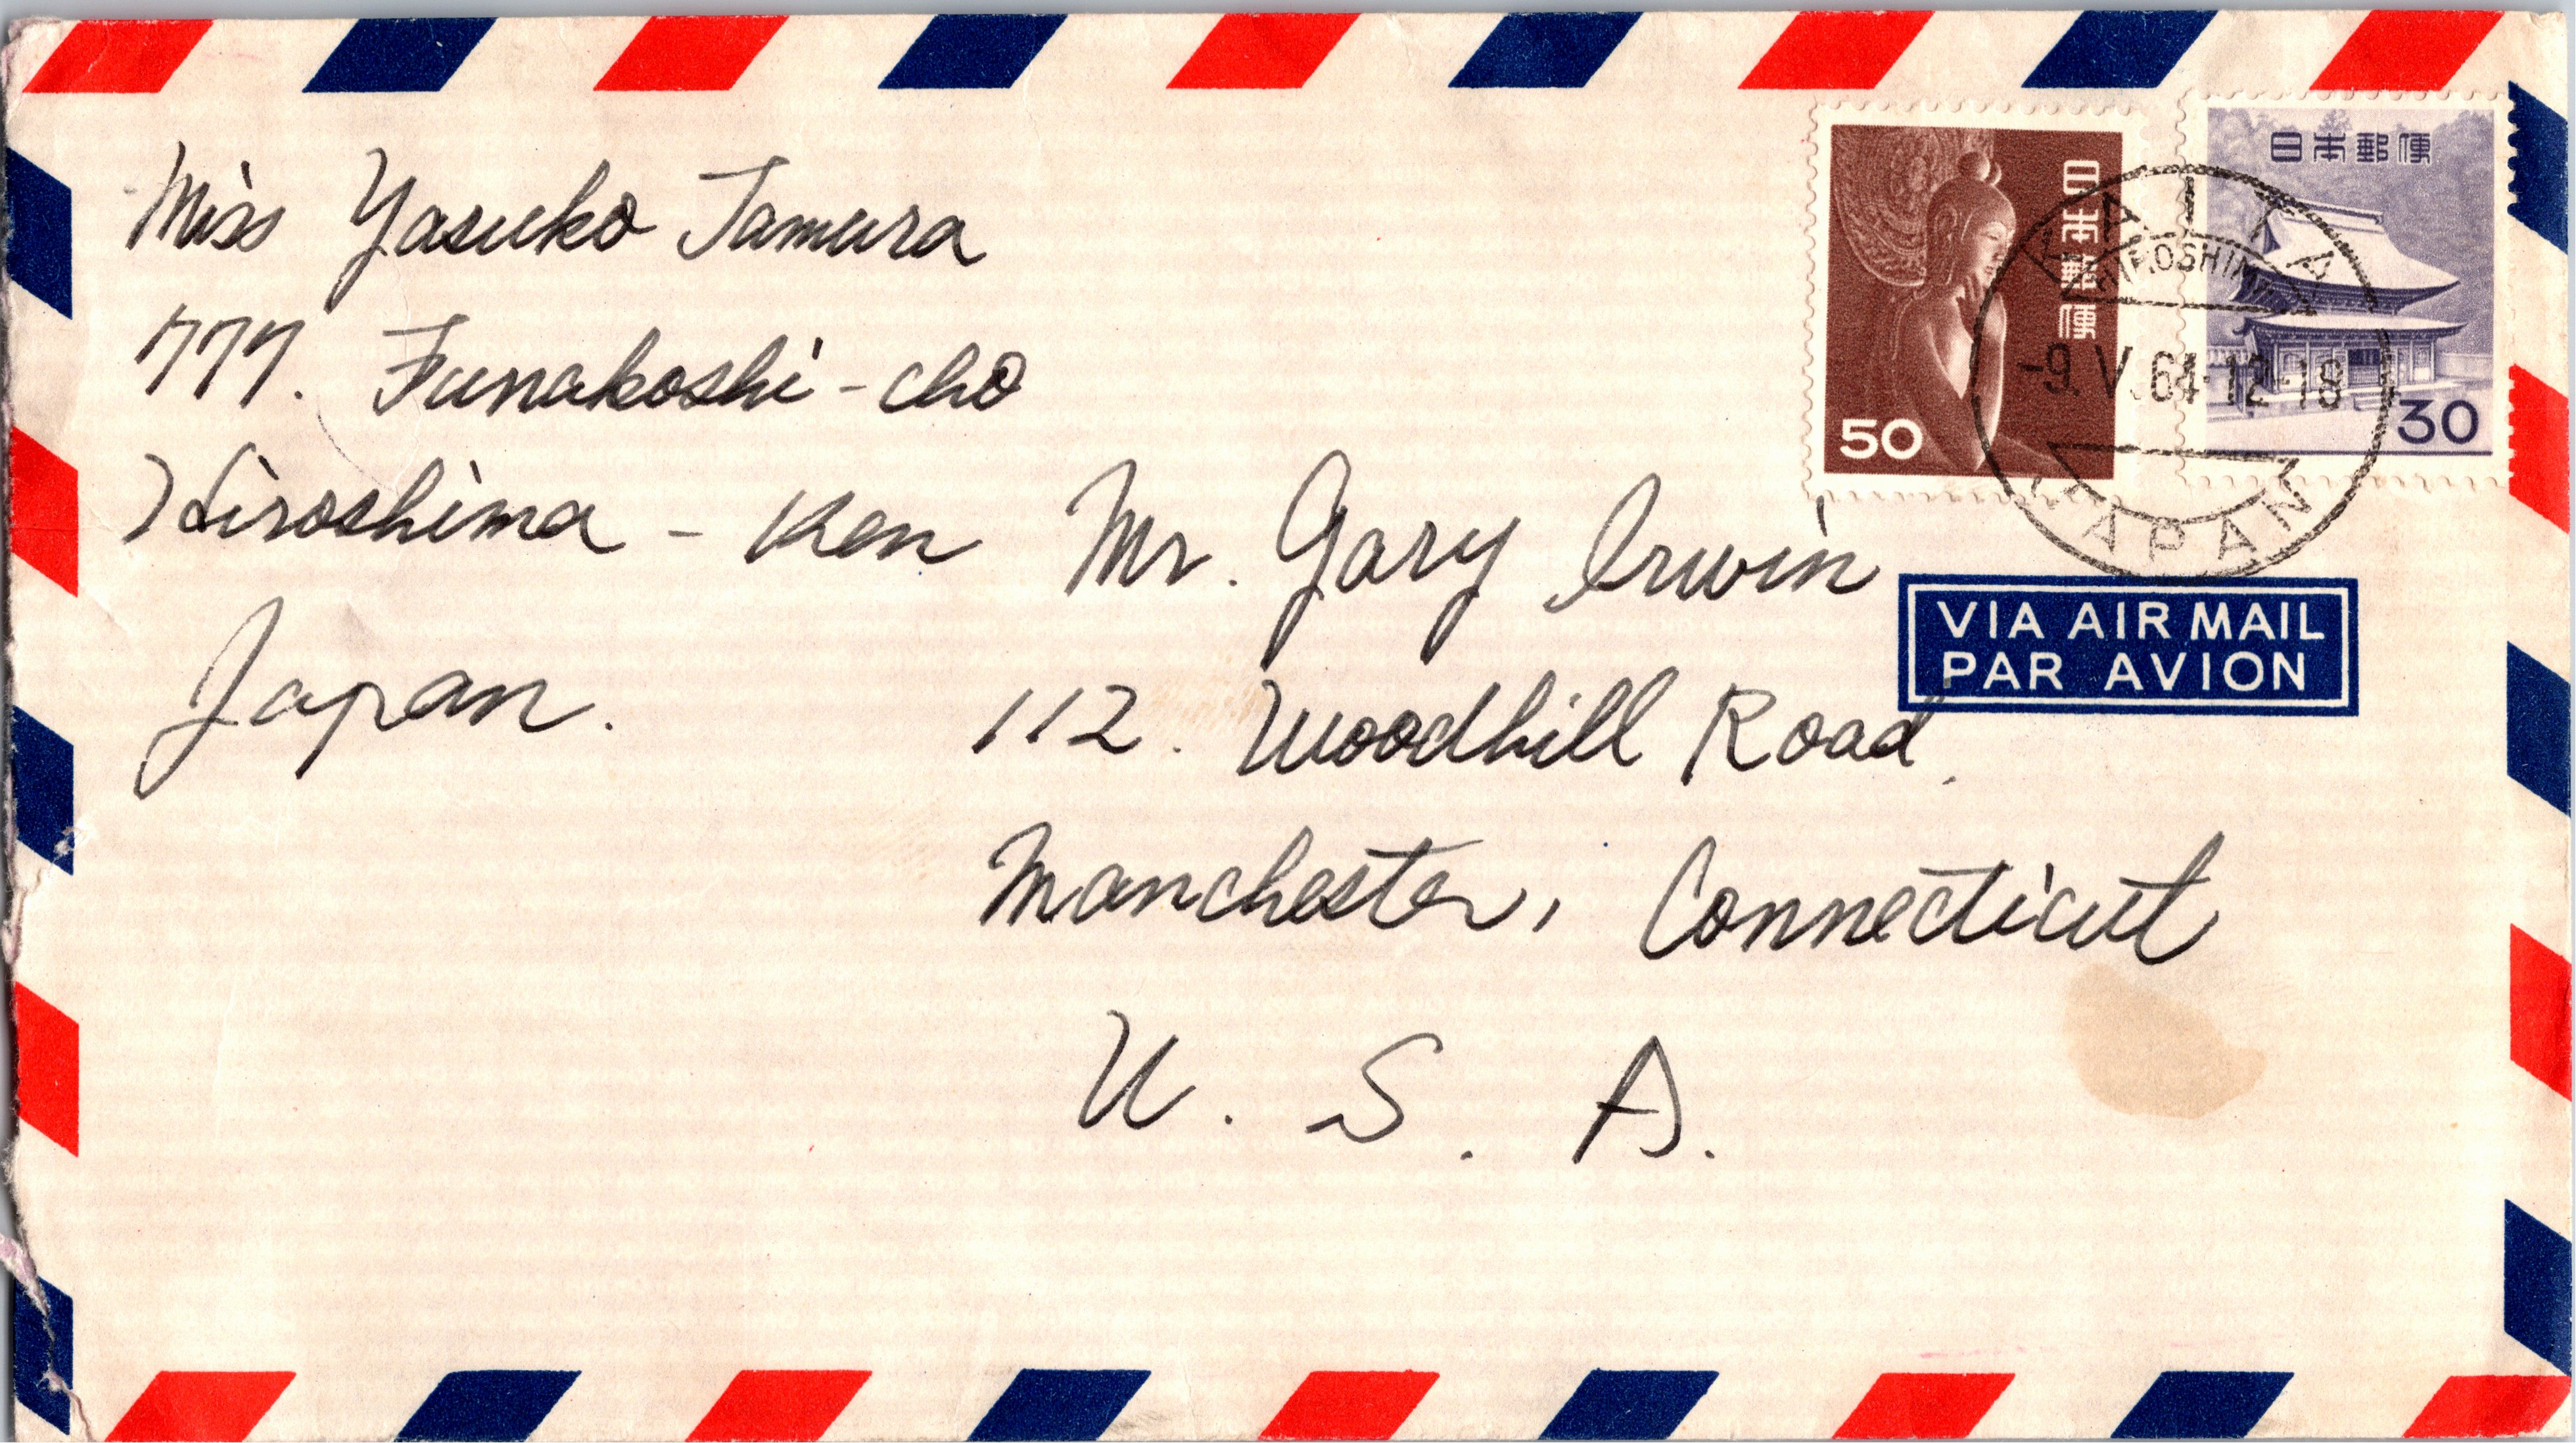 Miss Yasuko Tamura
777. Funakoshi-cho
Hiroshima - Ken
Japan.
日本郵便
50
日本郵便
30
KAITA
HIROSHIMA
-9.V.64.12-18
JAPAN
VIA AIR MAIL
PAR AVION
Mr. Gary Irwin
112. Woodhill Road,
Manchester, Connecticut
U. S. A.